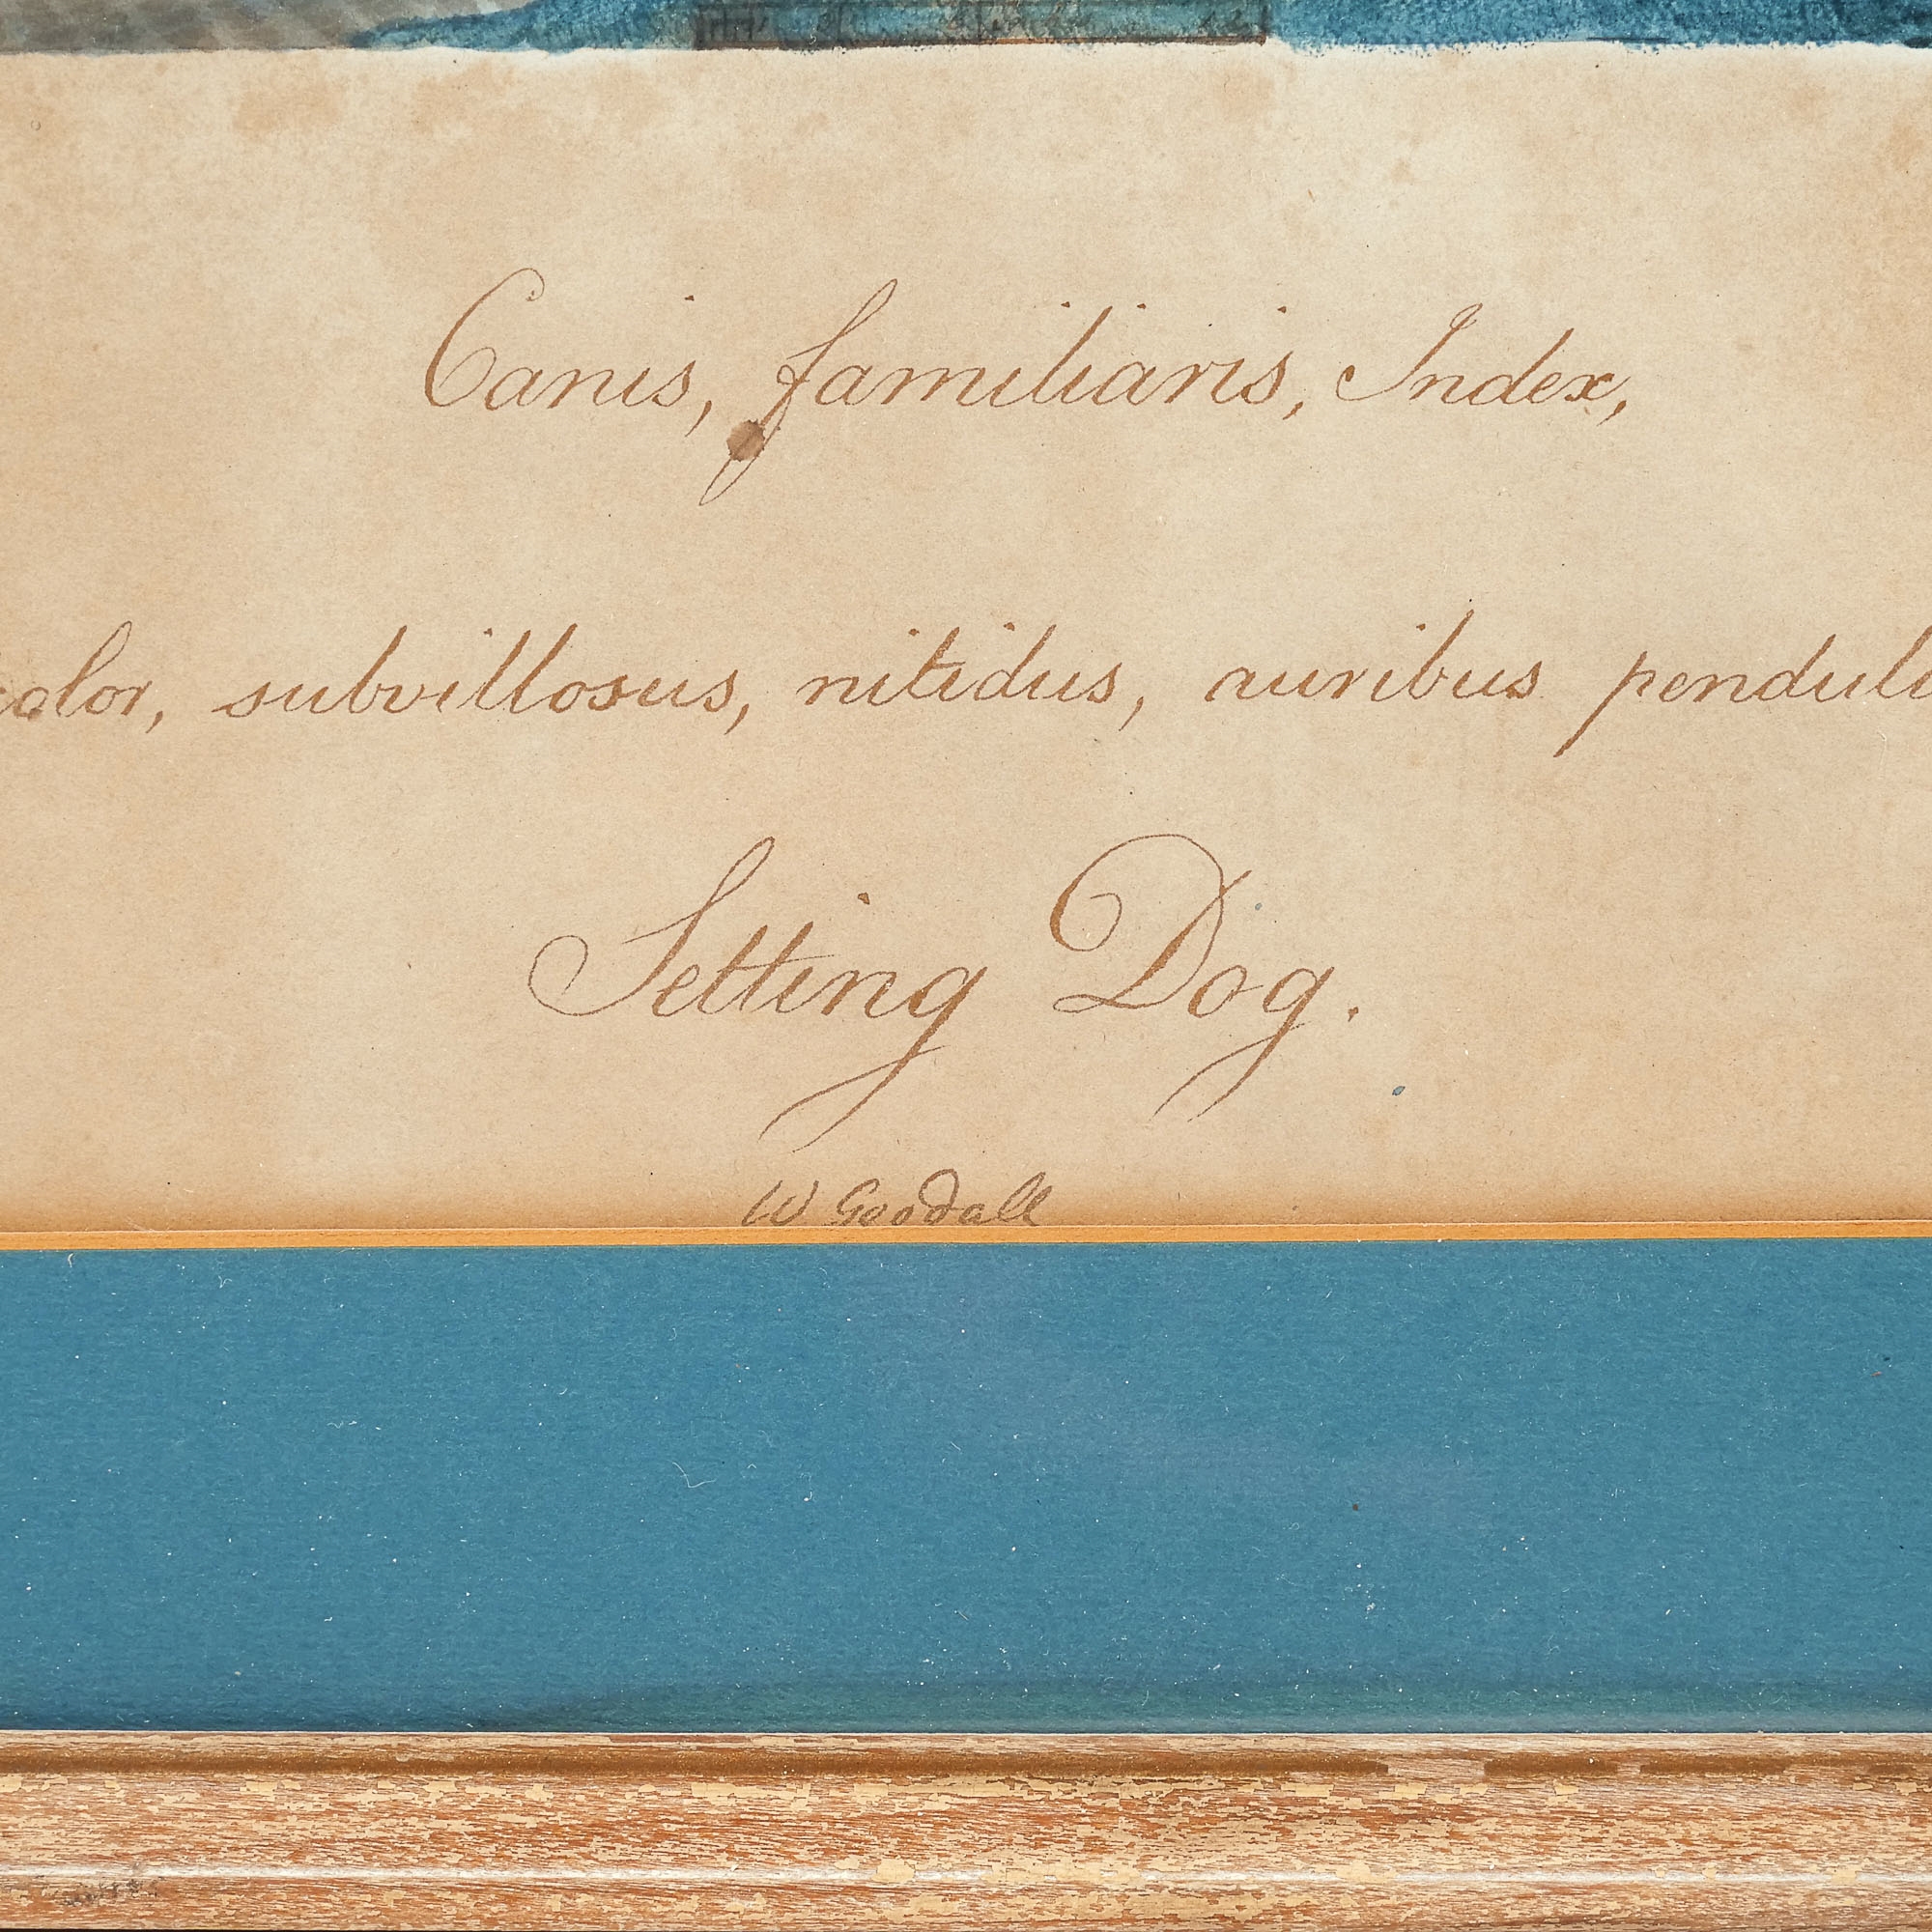 Canis, familiaris, Index,
color, subvillosus, nitidus, auribus penduli
Setting Dog.
W Goodall